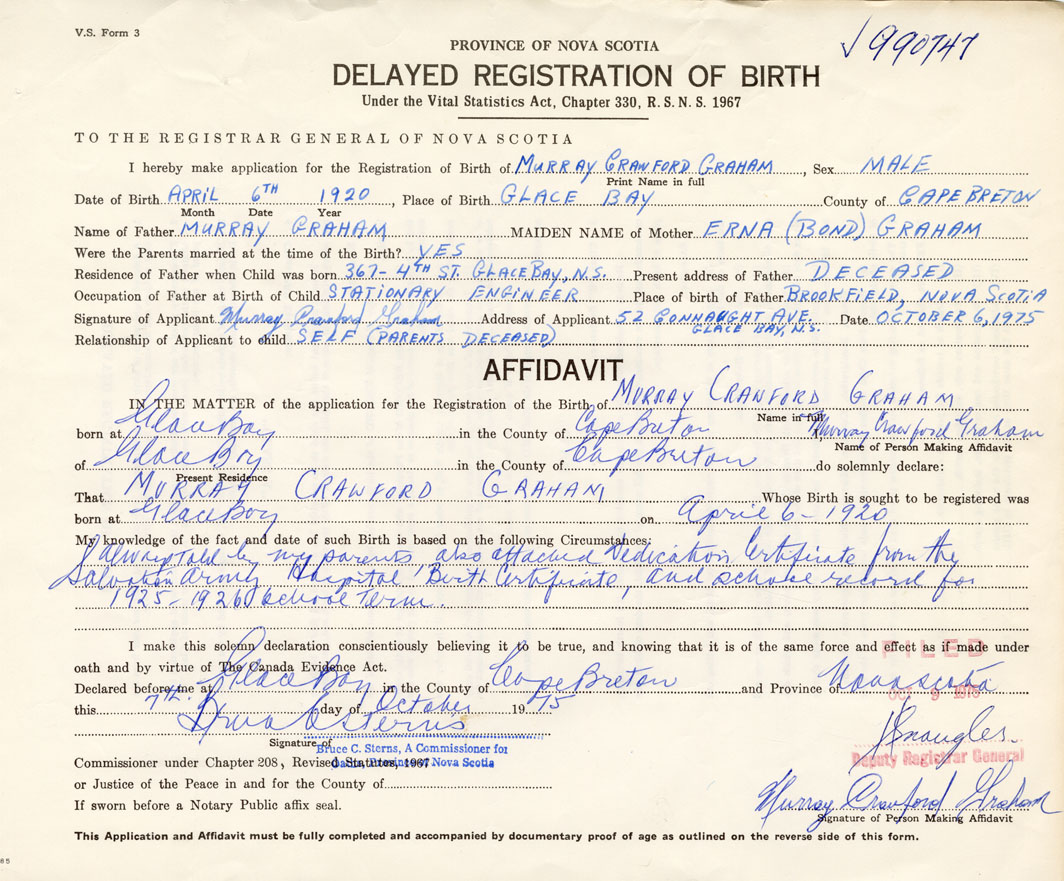 V.S. Form 3
√990747
PROVINCE OF NOVA SCOTIA
DELAYED REGISTRATION OF BIRTH
Under the Vital Statistics Act, Chapter 330, R.S.N.S. 1967
TO THE REGISTRAR GENERAL OF NOVA SCOTIA
I hereby make application for the Registration of Birth of MURRAY CRAWFORD GRAHAM, Sex MALE
Print Name in full
Date of Birth APRIL 6TH 1920, Place of Birth GLACE BAY County of CAPE BRETON
Month Date Year
Name of Father MURRAY GRAHAM MAIDEN NAME of Mother ERNA (BOND) GRAHAM
Were the Parents married at the time of the Birth? YES
Residence of Father when Child was born 367-4TH ST. GLACE BAY, N.S. Present address of Father DECEASED
Occupation of Father at Birth of Child STATIONARY ENGINEER Place of birth of Father BROOKFIELD, NOVA SCOTIA
Signature of Applicant Murray Crawford Graham Address of Applicant 52 CONNAUGHT AVE. Date OCTOBER 6, 1975
GLACE BAY, N.S.
Relationship of Applicant to child SELF (PARENTS DECEASED)
AFFIDAVIT
IN THE MATTER of the application for the Registration of the Birth of MURRAY CRAWFORD GRAHAM
Name in full
born at Glace Bay in the County of Cape Breton Murray Crawford Graham
Name of Person Making Affidavit
of Glace Bay in the County of Cape Breton do solemnly declare:
Present Residence
That MURRAY CRAWFORD GRAHAM Whose Birth is sought to be registered was
born at Glace Bay on April 6-1920
My knowledge of the fact and date of such Birth is based on the following Circumstances:
I always told by my parents also attached Dedication Certificate from the
Salvation Army Hospital Birth Certificate, and school record for
1925-1926 School Term.
I make this solemn declaration conscientiously believing it to be true, and knowing that it is of the same force and effect as if made under
FILED
oath and by virtue of The Canada Evidence Act.
Declared before me at Glace Bay in the County of Cape Breton and Province of Nova Scotia
OCT 9 1975
this 7th. day of October 1975
Bruce C Sterns
Signature of
Bruce C. Sterns, A Commissioner for
Deputy Registrar General
Commissioner under Chapter 208, Revised Statutes, 1967
Nova Scotia
or Justice of the Peace in and for the County of
Murray Crawford Graham
If sworn before a Notary Public affix seal.
Signature of Person Making Affidavit
This Application and Affidavit must be fully completed and accompanied by documentary proof of age as outlined on the reverse side of this form.